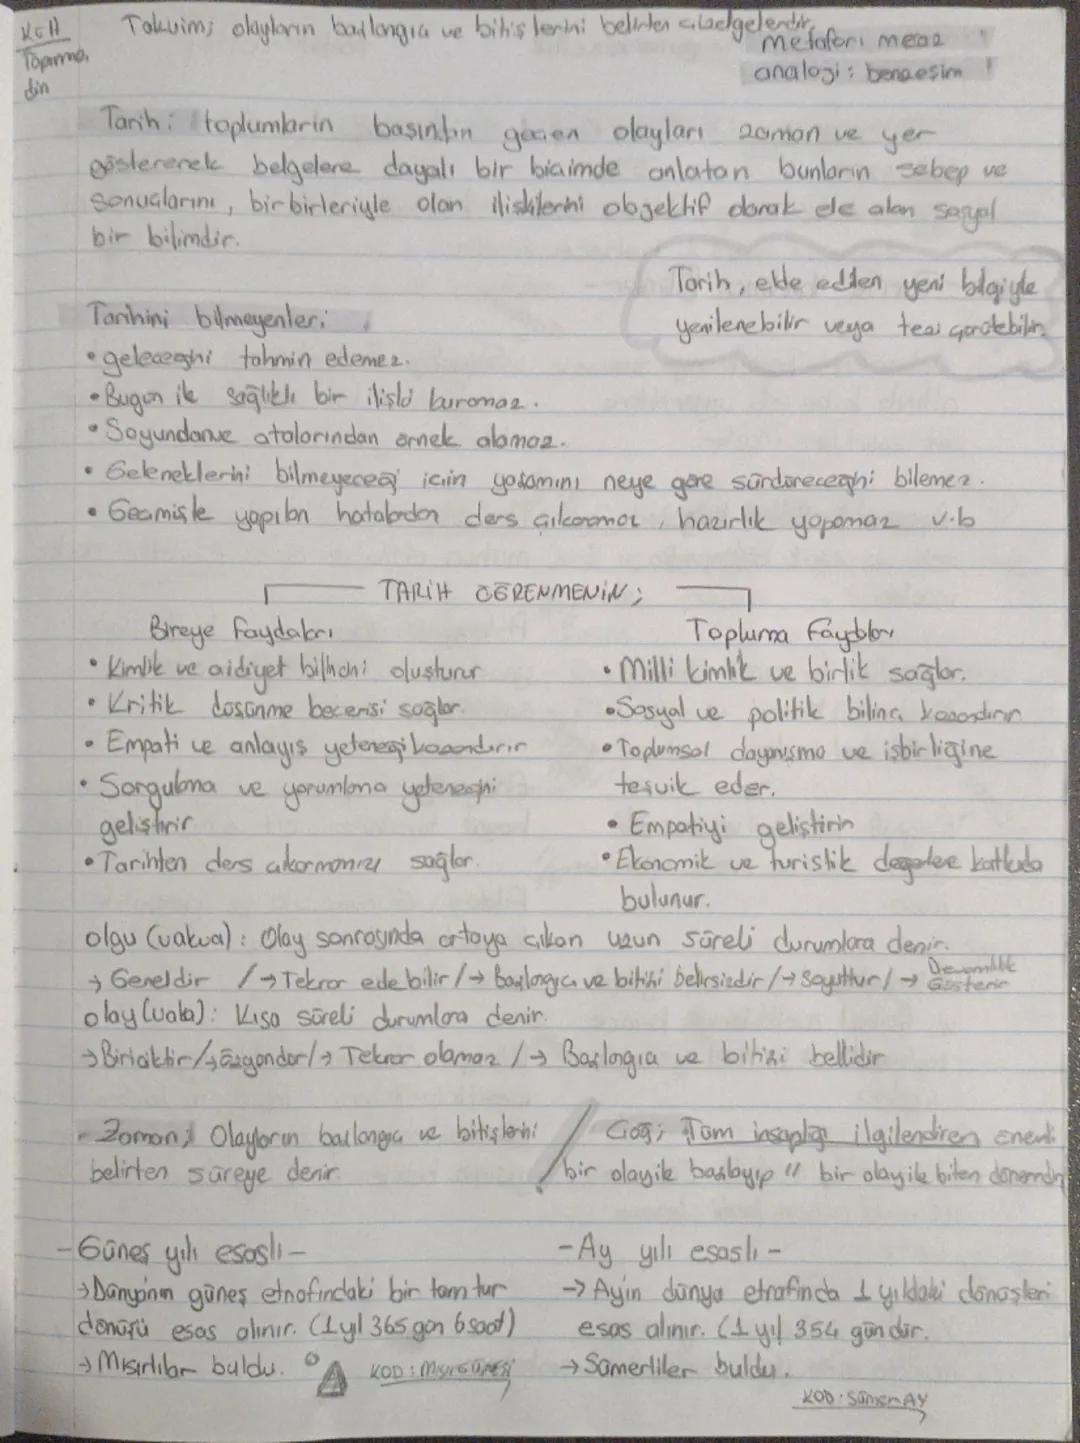 Kült
Tapınma,
din
Takvim; olayların başlangıcı ve bitişlerini belirten çizelgelerdir.
metafor: mecaz
analoji: benzeşim
Tarih: toplumların başından geçen olayları zaman ve yer
göstererek belgelere dayalı bir biçimde anlatan bunların sebep ve
sonuçlarını, birbirleriyle olan ilişkilerini objektif olarak ele alan sosyal
bir bilimdir.
Tarih, elde edilen yeni bilgiyle
yenilenebilir veya tezi çürütebilir.
Tarihini bilmeyenler;
• geleceğini tahmin edemez.
• Bugün ile sağlıklı bir ilişki kuramaz.
• Soyundan ve atalarından örnek alamaz.
• Geleneklerini bilmeyeceği için yaşamını neye göre sürdüreceğini bilemez.
• Geçmişte yapılan hatalardan ders çıkaramaz, hazırlık yapamaz v.b
TARİH ÖĞRENMENİN;
Bireye Faydaları
• Kimlik ve aidiyet bilinci oluşturur
• Kritik düşünme becerisi sağlar.
• Empati ve anlayış yeteneği kazandırır
• Sorgulama ve yorumlama yeteneğini
geliştirir
• Tarihten ders çıkarmamızı sağlar.
Topluma Faydaları
• Milli kimlik ve birlik sağlar.
• Sosyal ve politik bilinç kazandırır
• Toplumsal dayanışma ve işbirliğine
teşvik eder.
• Empatiyi geliştirir
• Ekonomik ve turistik değerlere katkıda
bulunur.
olgu (vakıa): Olay sonrasında ortaya çıkan uzun süreli durumlara denir.
→ Geneldir /→ Tekrar edebilir /→ Başlangıcı ve bitişi belirsizdir /→ Soyuttur /→ Devamlılık Gösterir
olay (vaka): Kısa süreli durumlara denir.
→ Biriciktir /→ özgündür /→ Tekrar olamaz /→ Başlangıcı ve bitişi bellidir
- Zaman; Olayların başlangıcı ve bitişlerini
belirten süreye denir.
Çağ; Tüm insanlığı ilgilendiren önemli
bir olay ile başlayıp " bir olay ile biten dönemdir
- Güneş yılı esaslı -
→ Dünya'nın güneş etrafındaki bir tam tur
dönüşü esas alınır. (1 yıl 365 gün 6 saat)
→ Mısırlılar buldu. KOD: MısırGÜNEŞİ
- Ay yılı esaslı -
→ Ay'ın dünya etrafında 1 yıldaki dönüşleri
esas alınır. (1 yıl 354 gündür.
→ Sümerliler buldu.
KOD: SümerAY